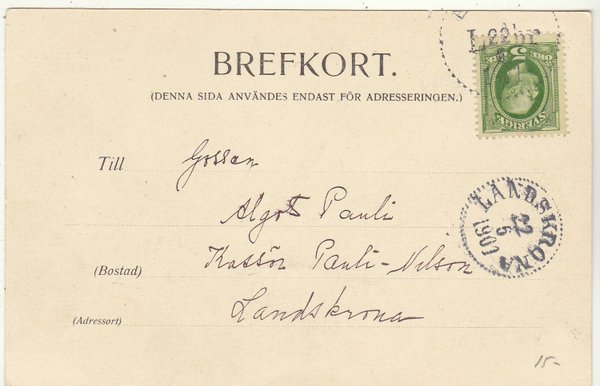 L 22 br
5
SVERIGE
BREFKORT.
(DENNA SIDA ANVÄNDES ENDAST FÖR ADRESSERINGEN.)
Till Gossen
Algot Pauli
(Bostad) Kassör Pauli-Nilson
(Adressort) Landskrona
LANDSKRONA
22
5
1901
15-